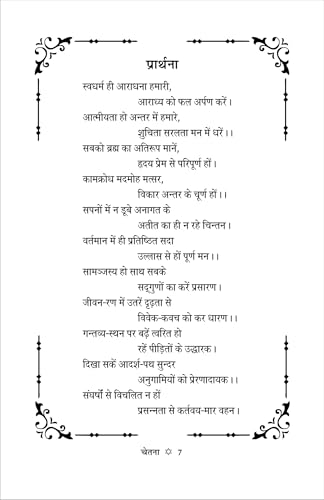 प्रार्थना
स्वधर्म ही आराधना हमारी,
आराध्य को फल अर्पण करें।
आत्मीयता हो अन्तर में हमारे,
शुचिता सरलता मन में धरें।।
सबको ब्रह्म का अतिरूप मानें,
हृदय प्रेम से परिपूर्ण हों।
कामक्रोध मदमोह मत्सर,
विकार अन्तर के चूर्ण हों।।
सपनों में न डूबे अनागत के
अतीत का ही न रहे चिन्तन।
वर्तमान में ही प्रतिष्ठित सदा
उल्लास से हों पूर्ण मन।।
सामञ्जस्य हो साथ सबके
सद्गुणों का करें प्रसारण।
जीवन-रण में उतरें दृढ़ता से
विवेक-कवच को कर धारण।।
गन्तव्य-स्थन पर बढ़ें त्वरित हो
रहें पीड़ितों के उद्धारक।
दिखा सकें आदर्श-पथ सुन्दर
अनुगामियों को प्रेरणादायक।।
संघर्षों से विचलित न हों
प्रसन्नता से कर्तवय-मार वहन।
चेतना ✡ 7